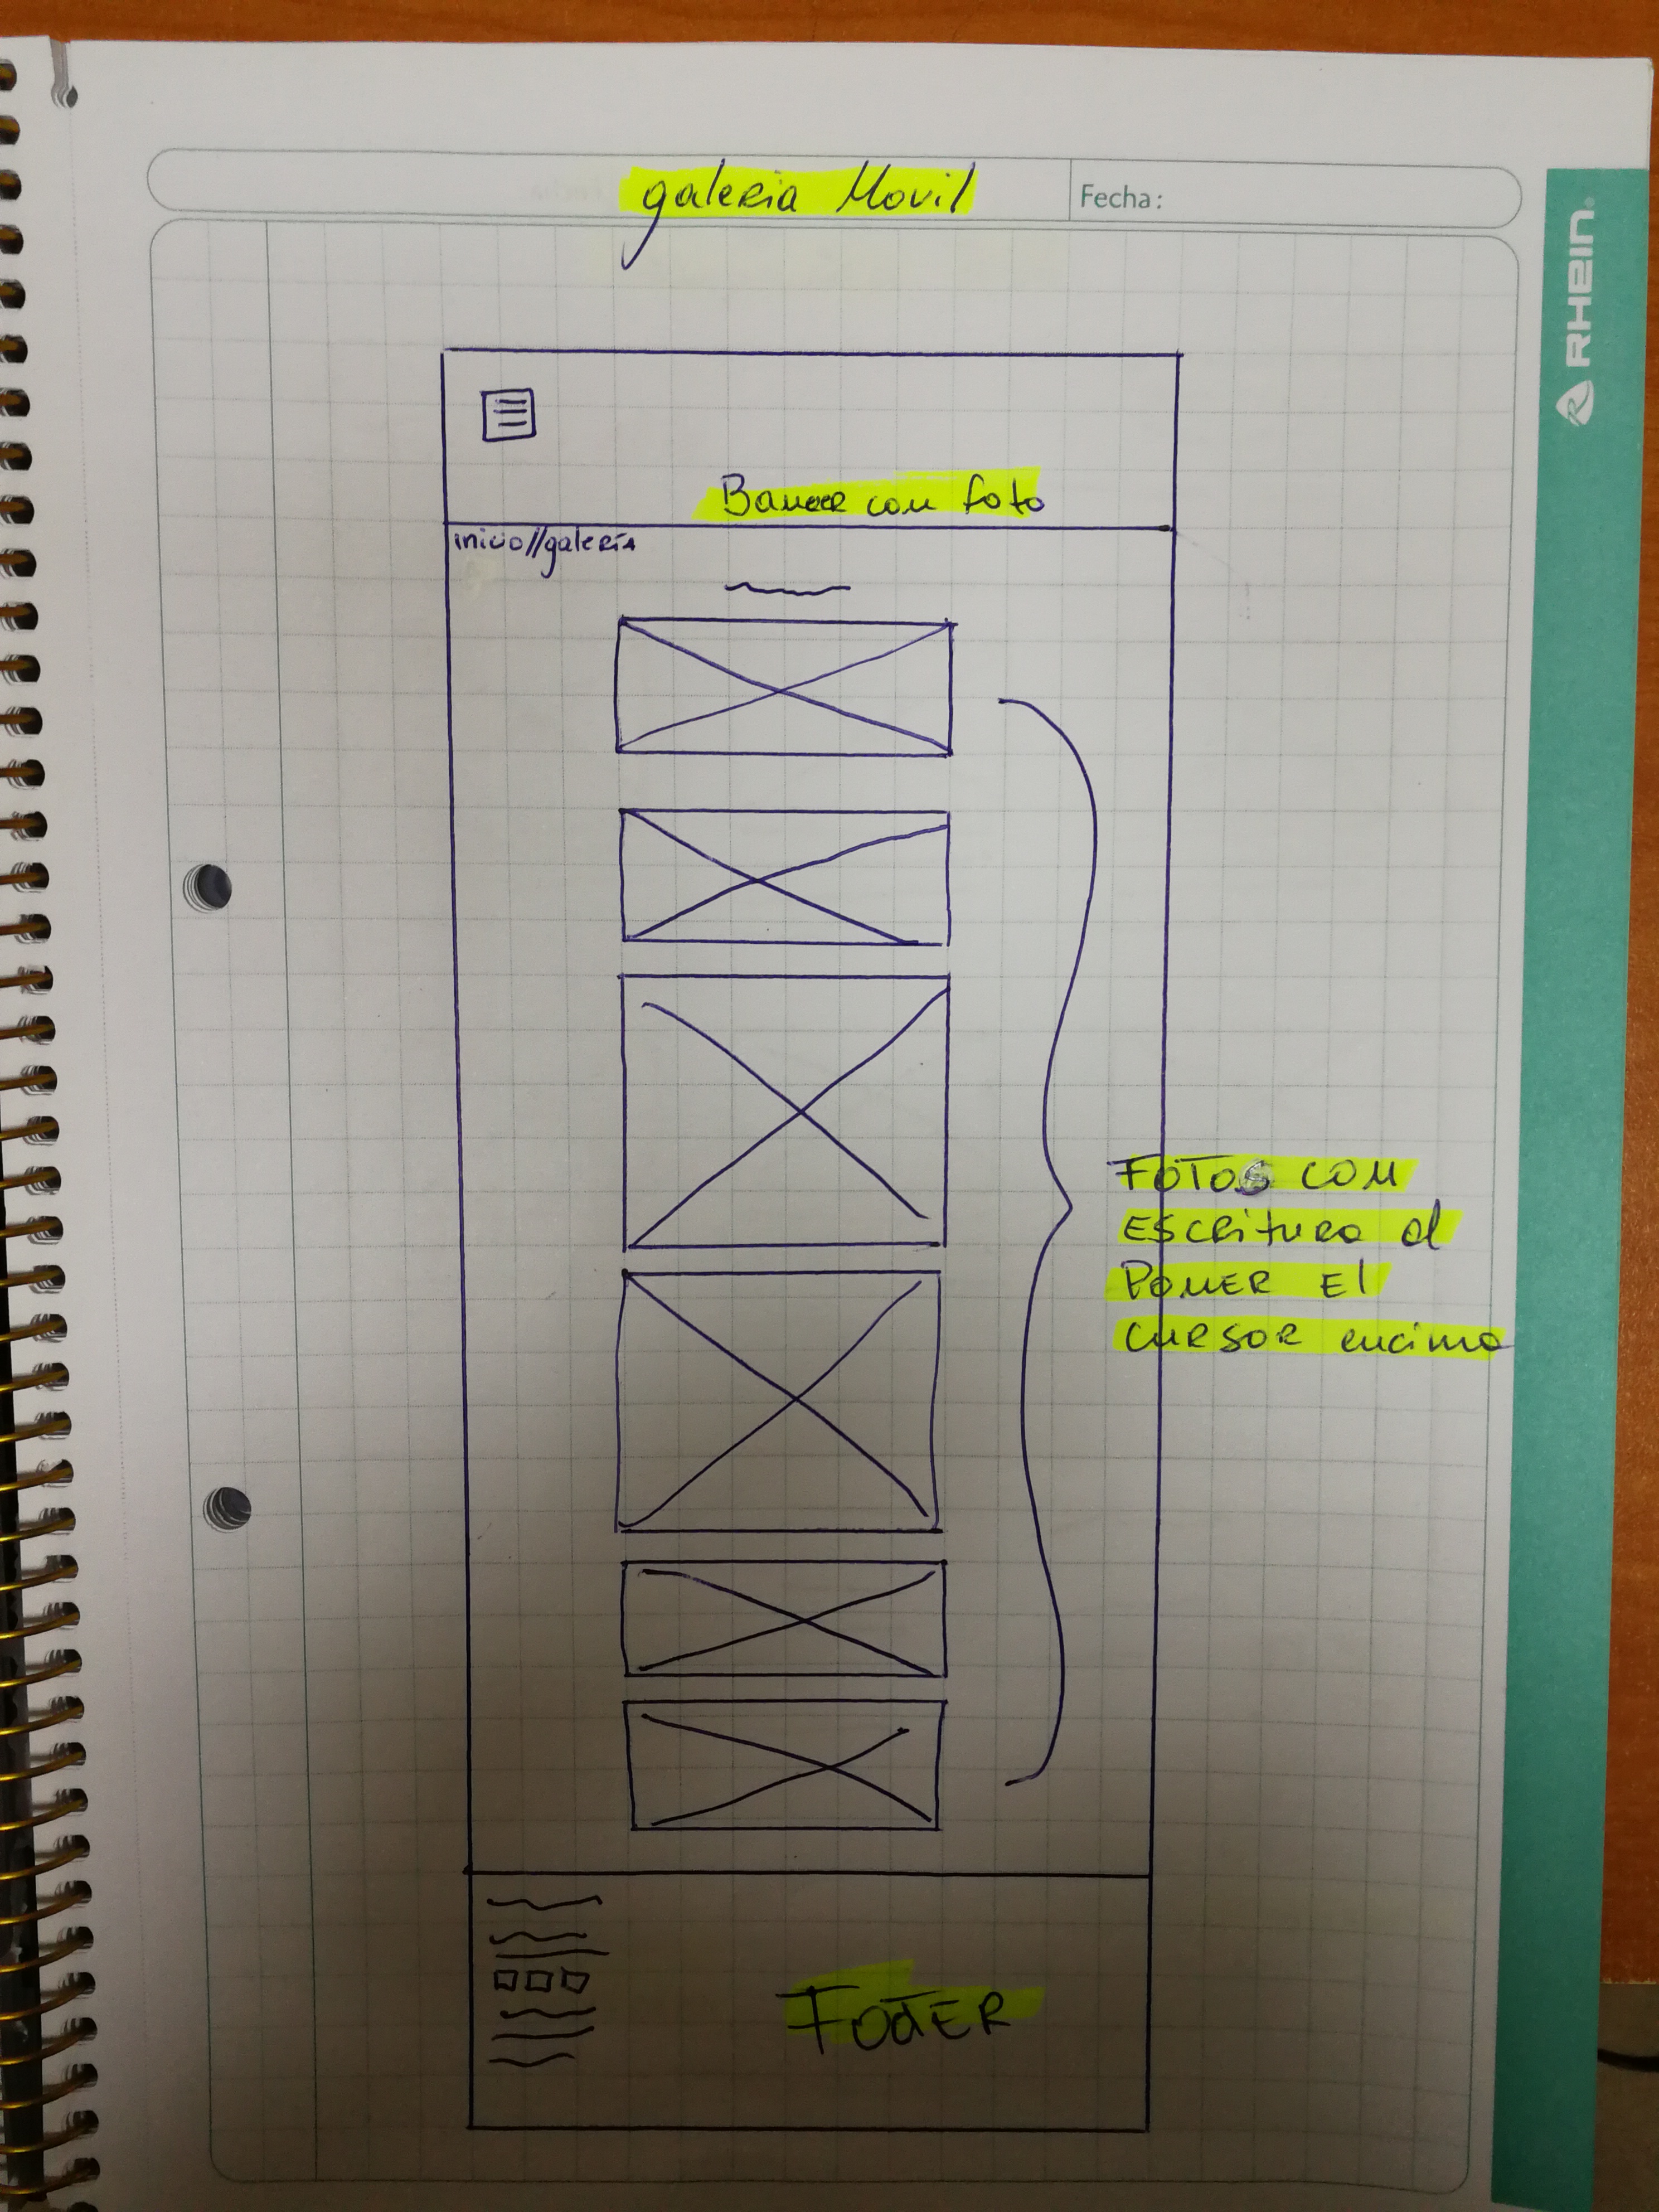 galeria Movil
Fecha:
RHEIN
Banner con foto
inicio//galeria
FOTOS CON
ESCRitura al
PONER El
CURSOR encima
FOOTER